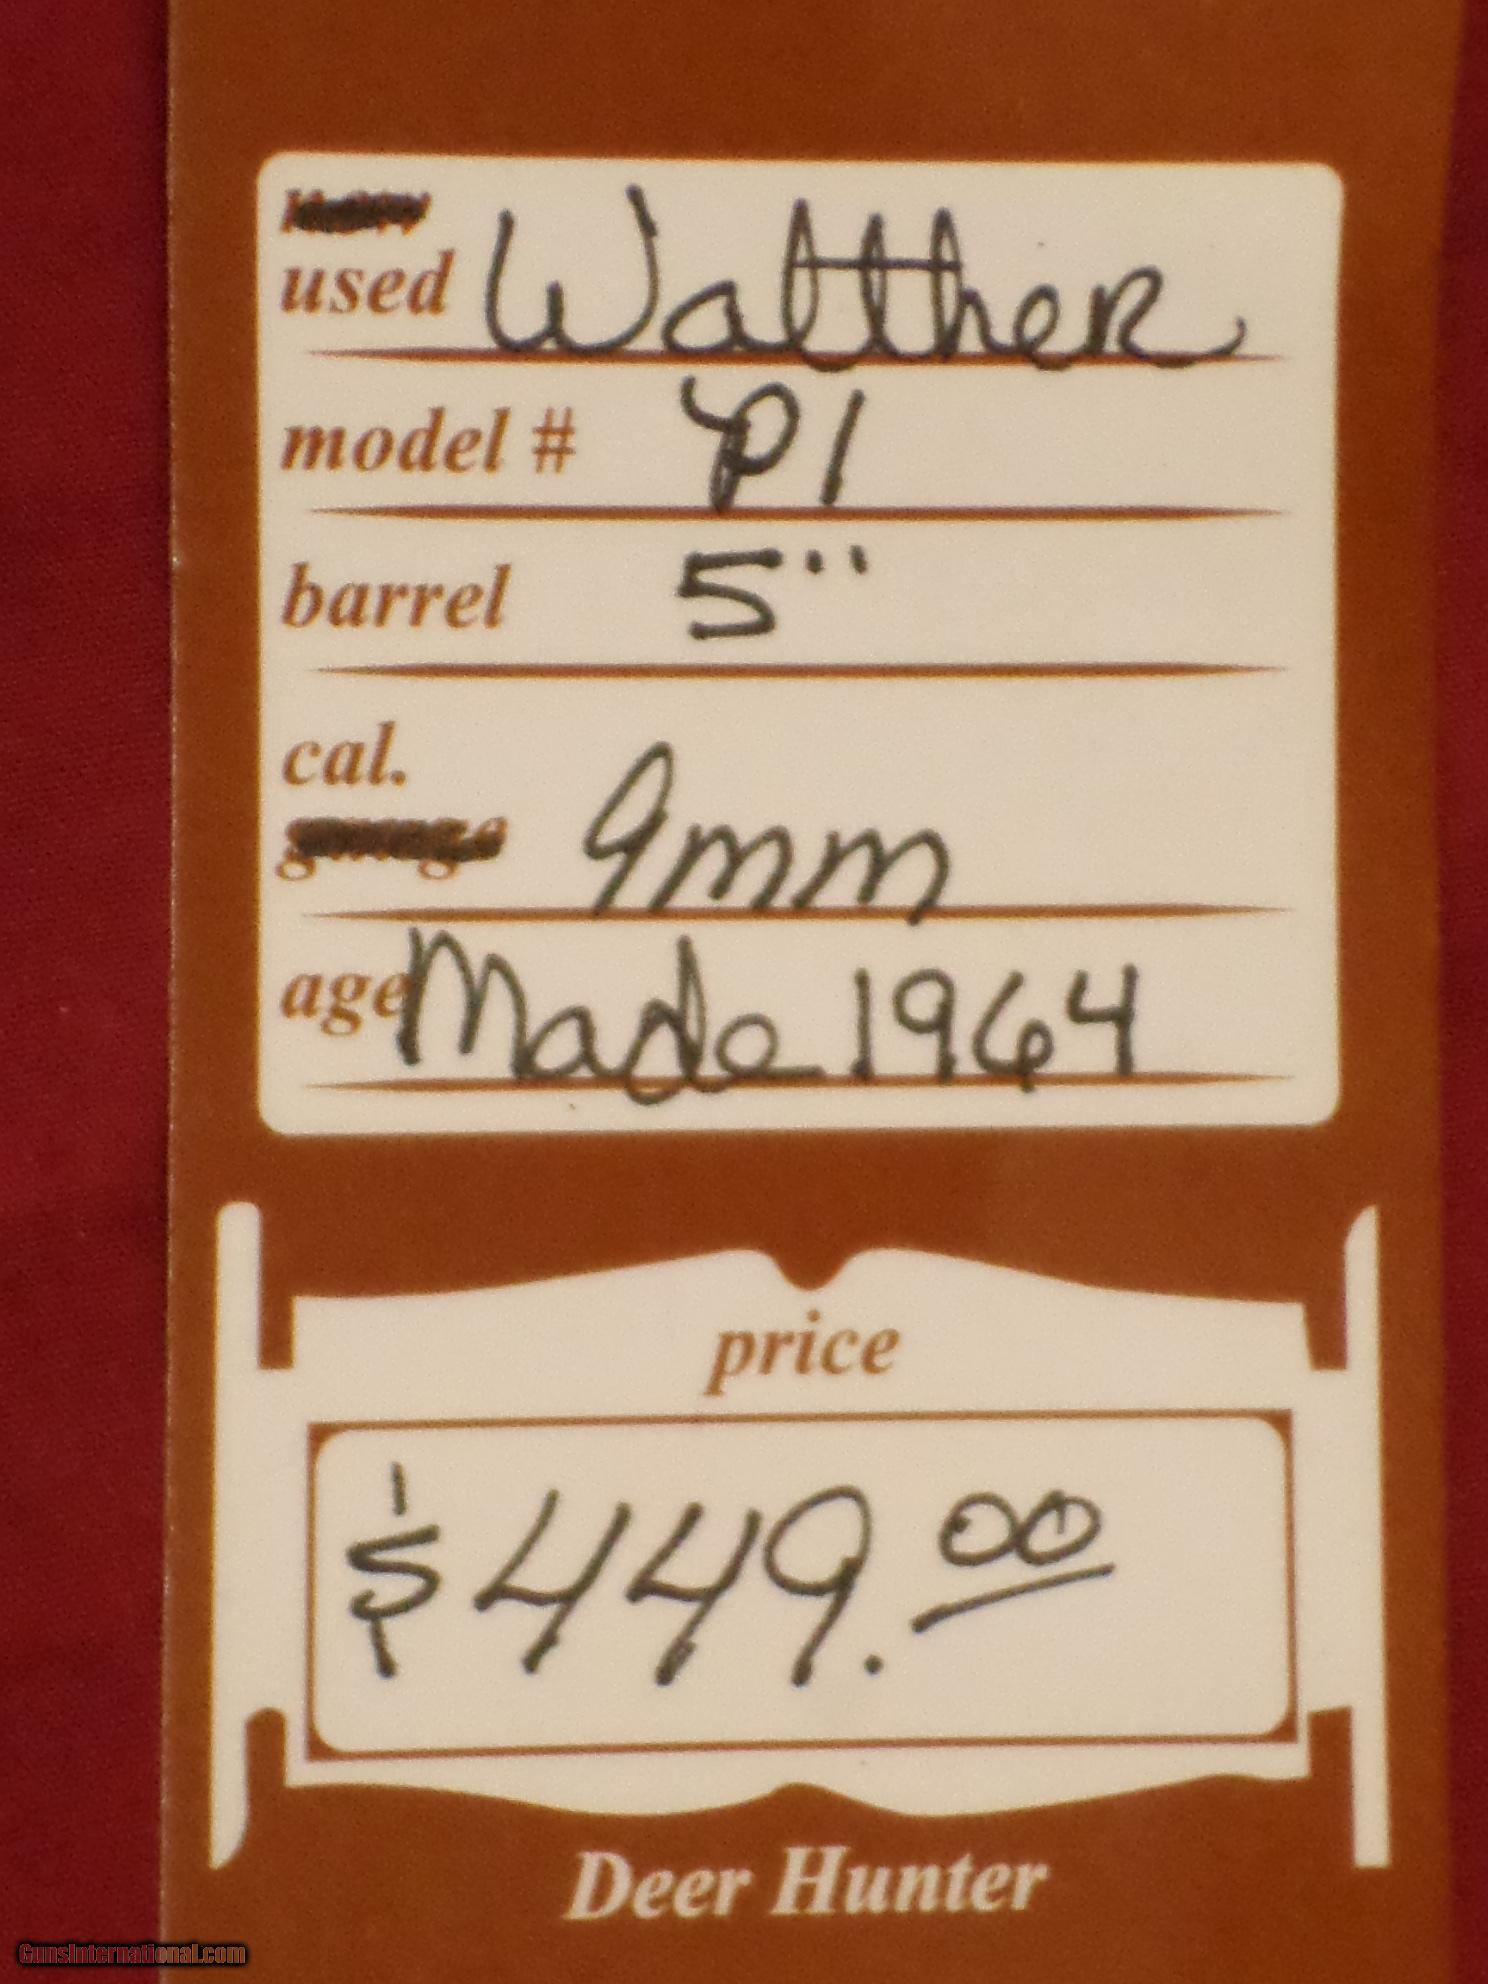 new
used Walther
model # P1
barrel 5"
cal.
gauge 9mm
age Made 1964
price
$449.00
Deer Hunter
GunsInternational.com